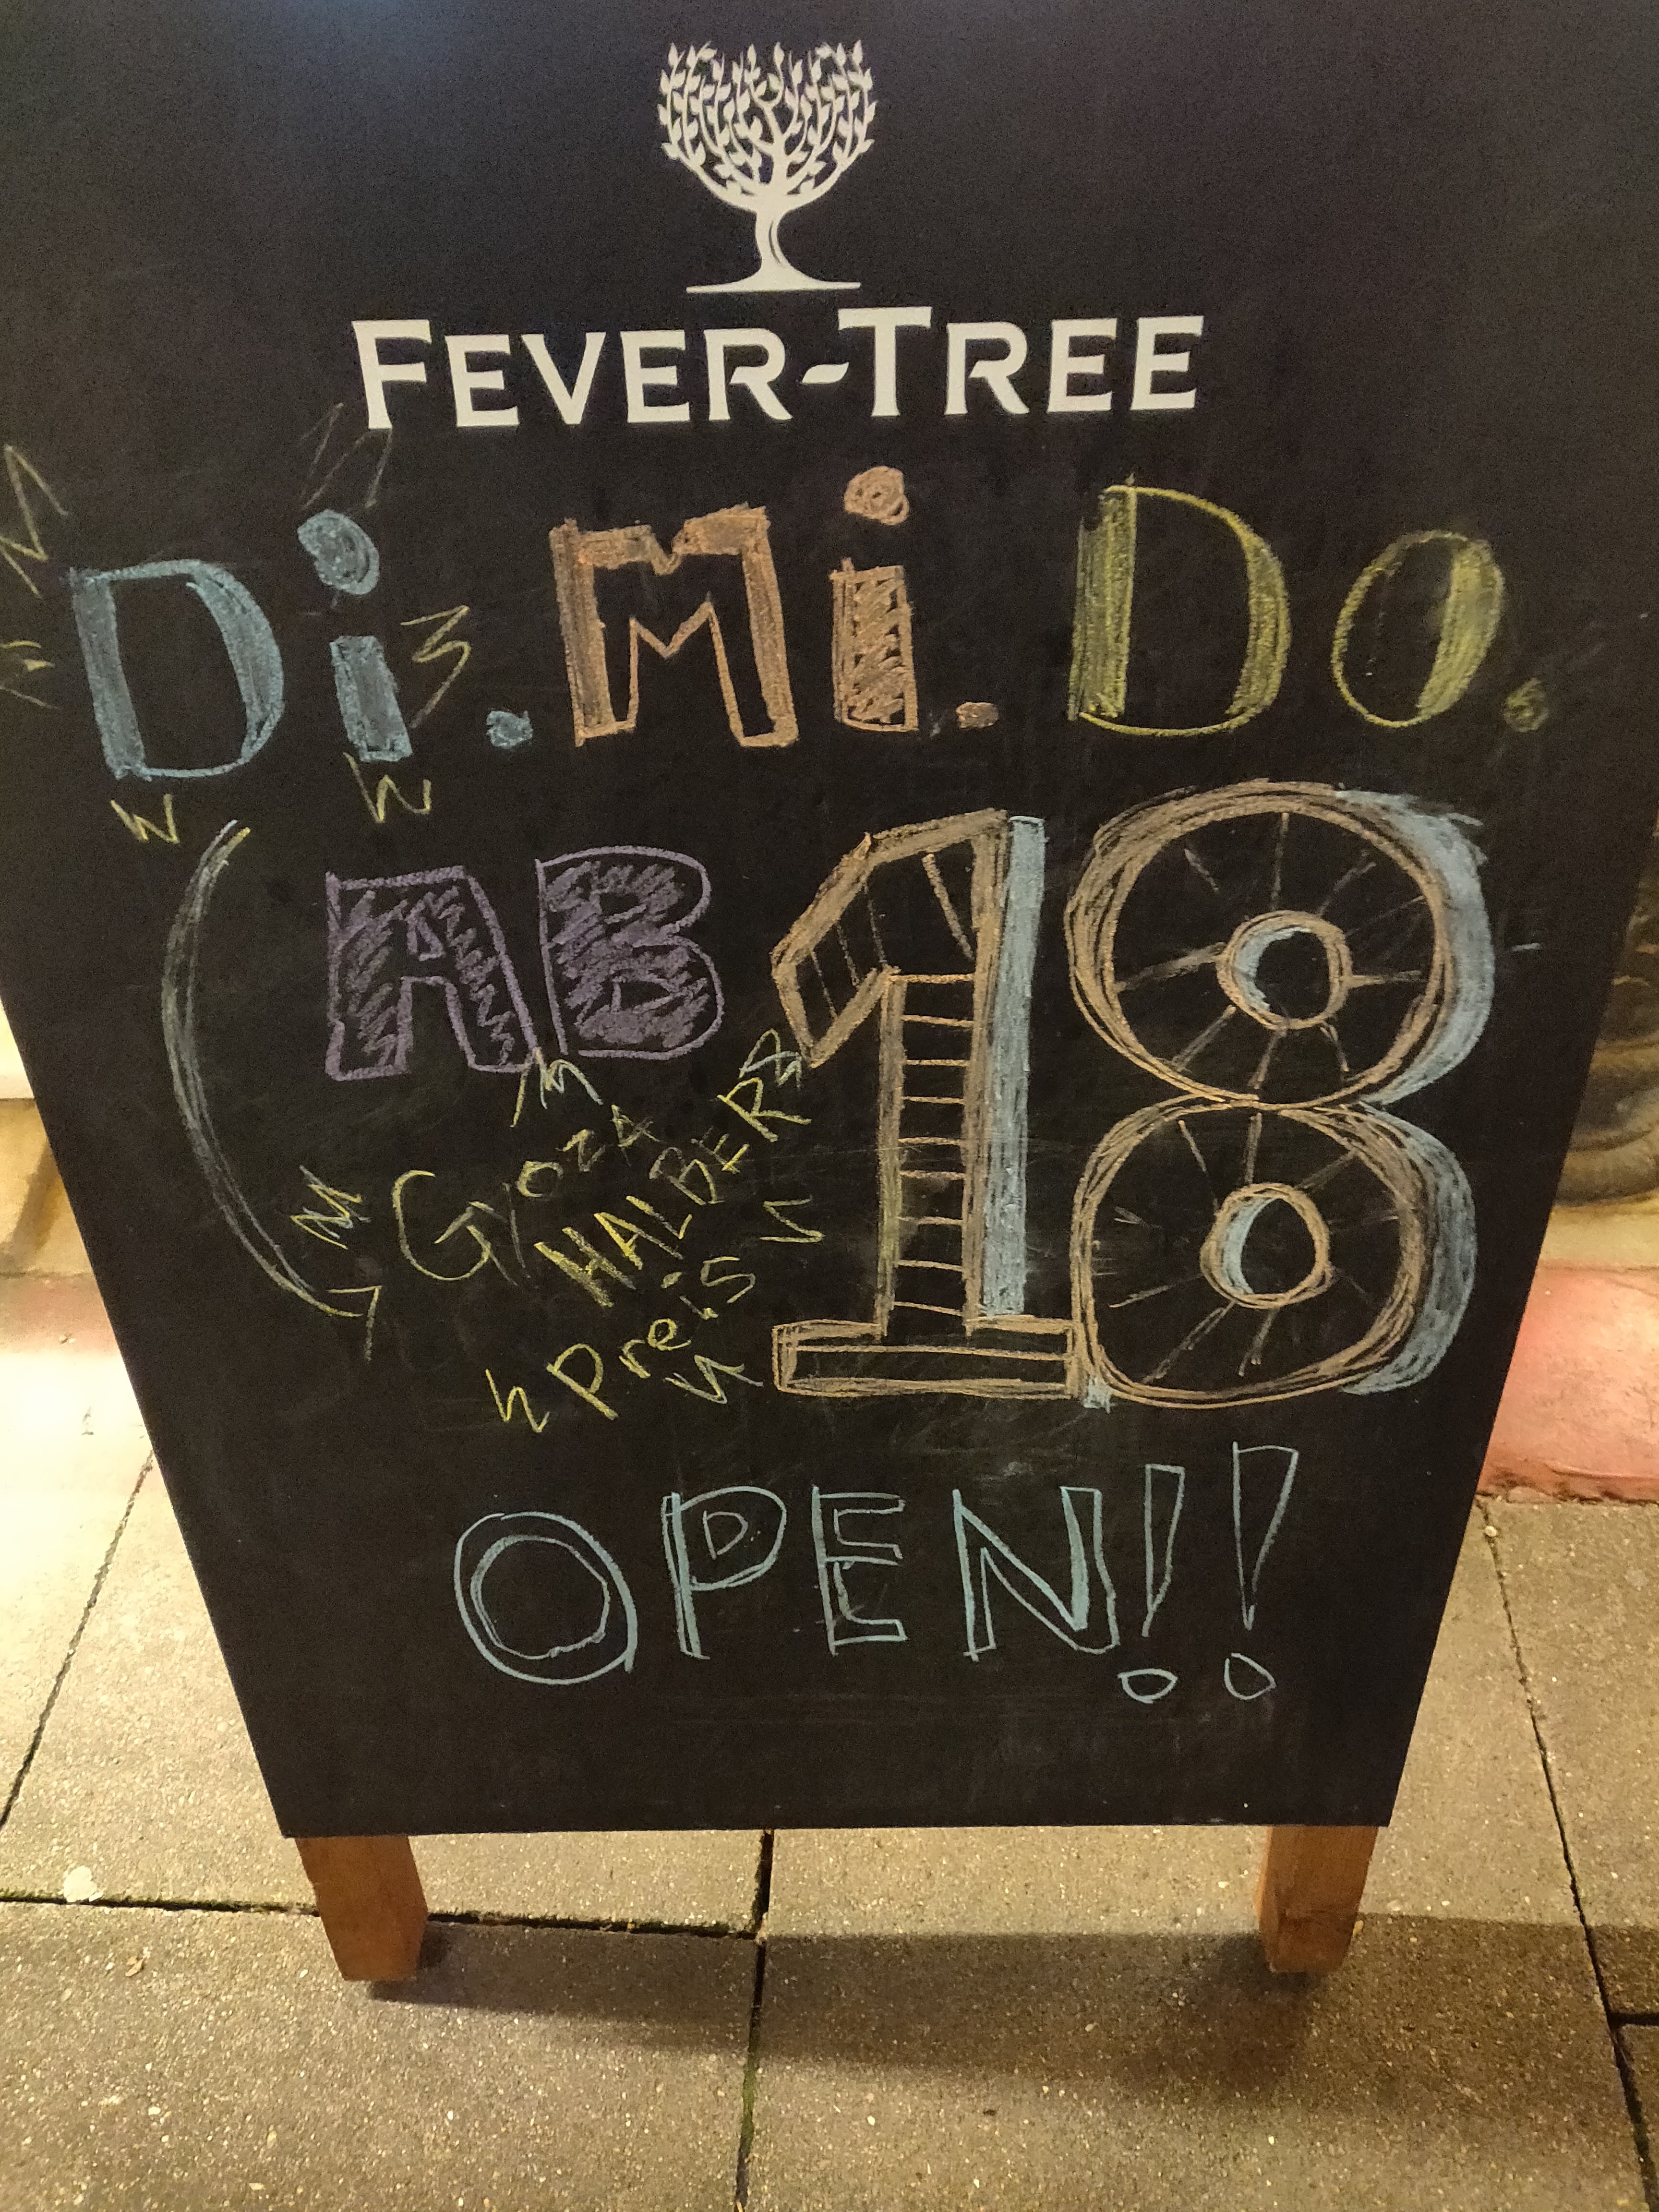 FEVER-TREE
Di. Mi. Do.
AB 18
Gyoza
HALBER
Preis
OPEN!!